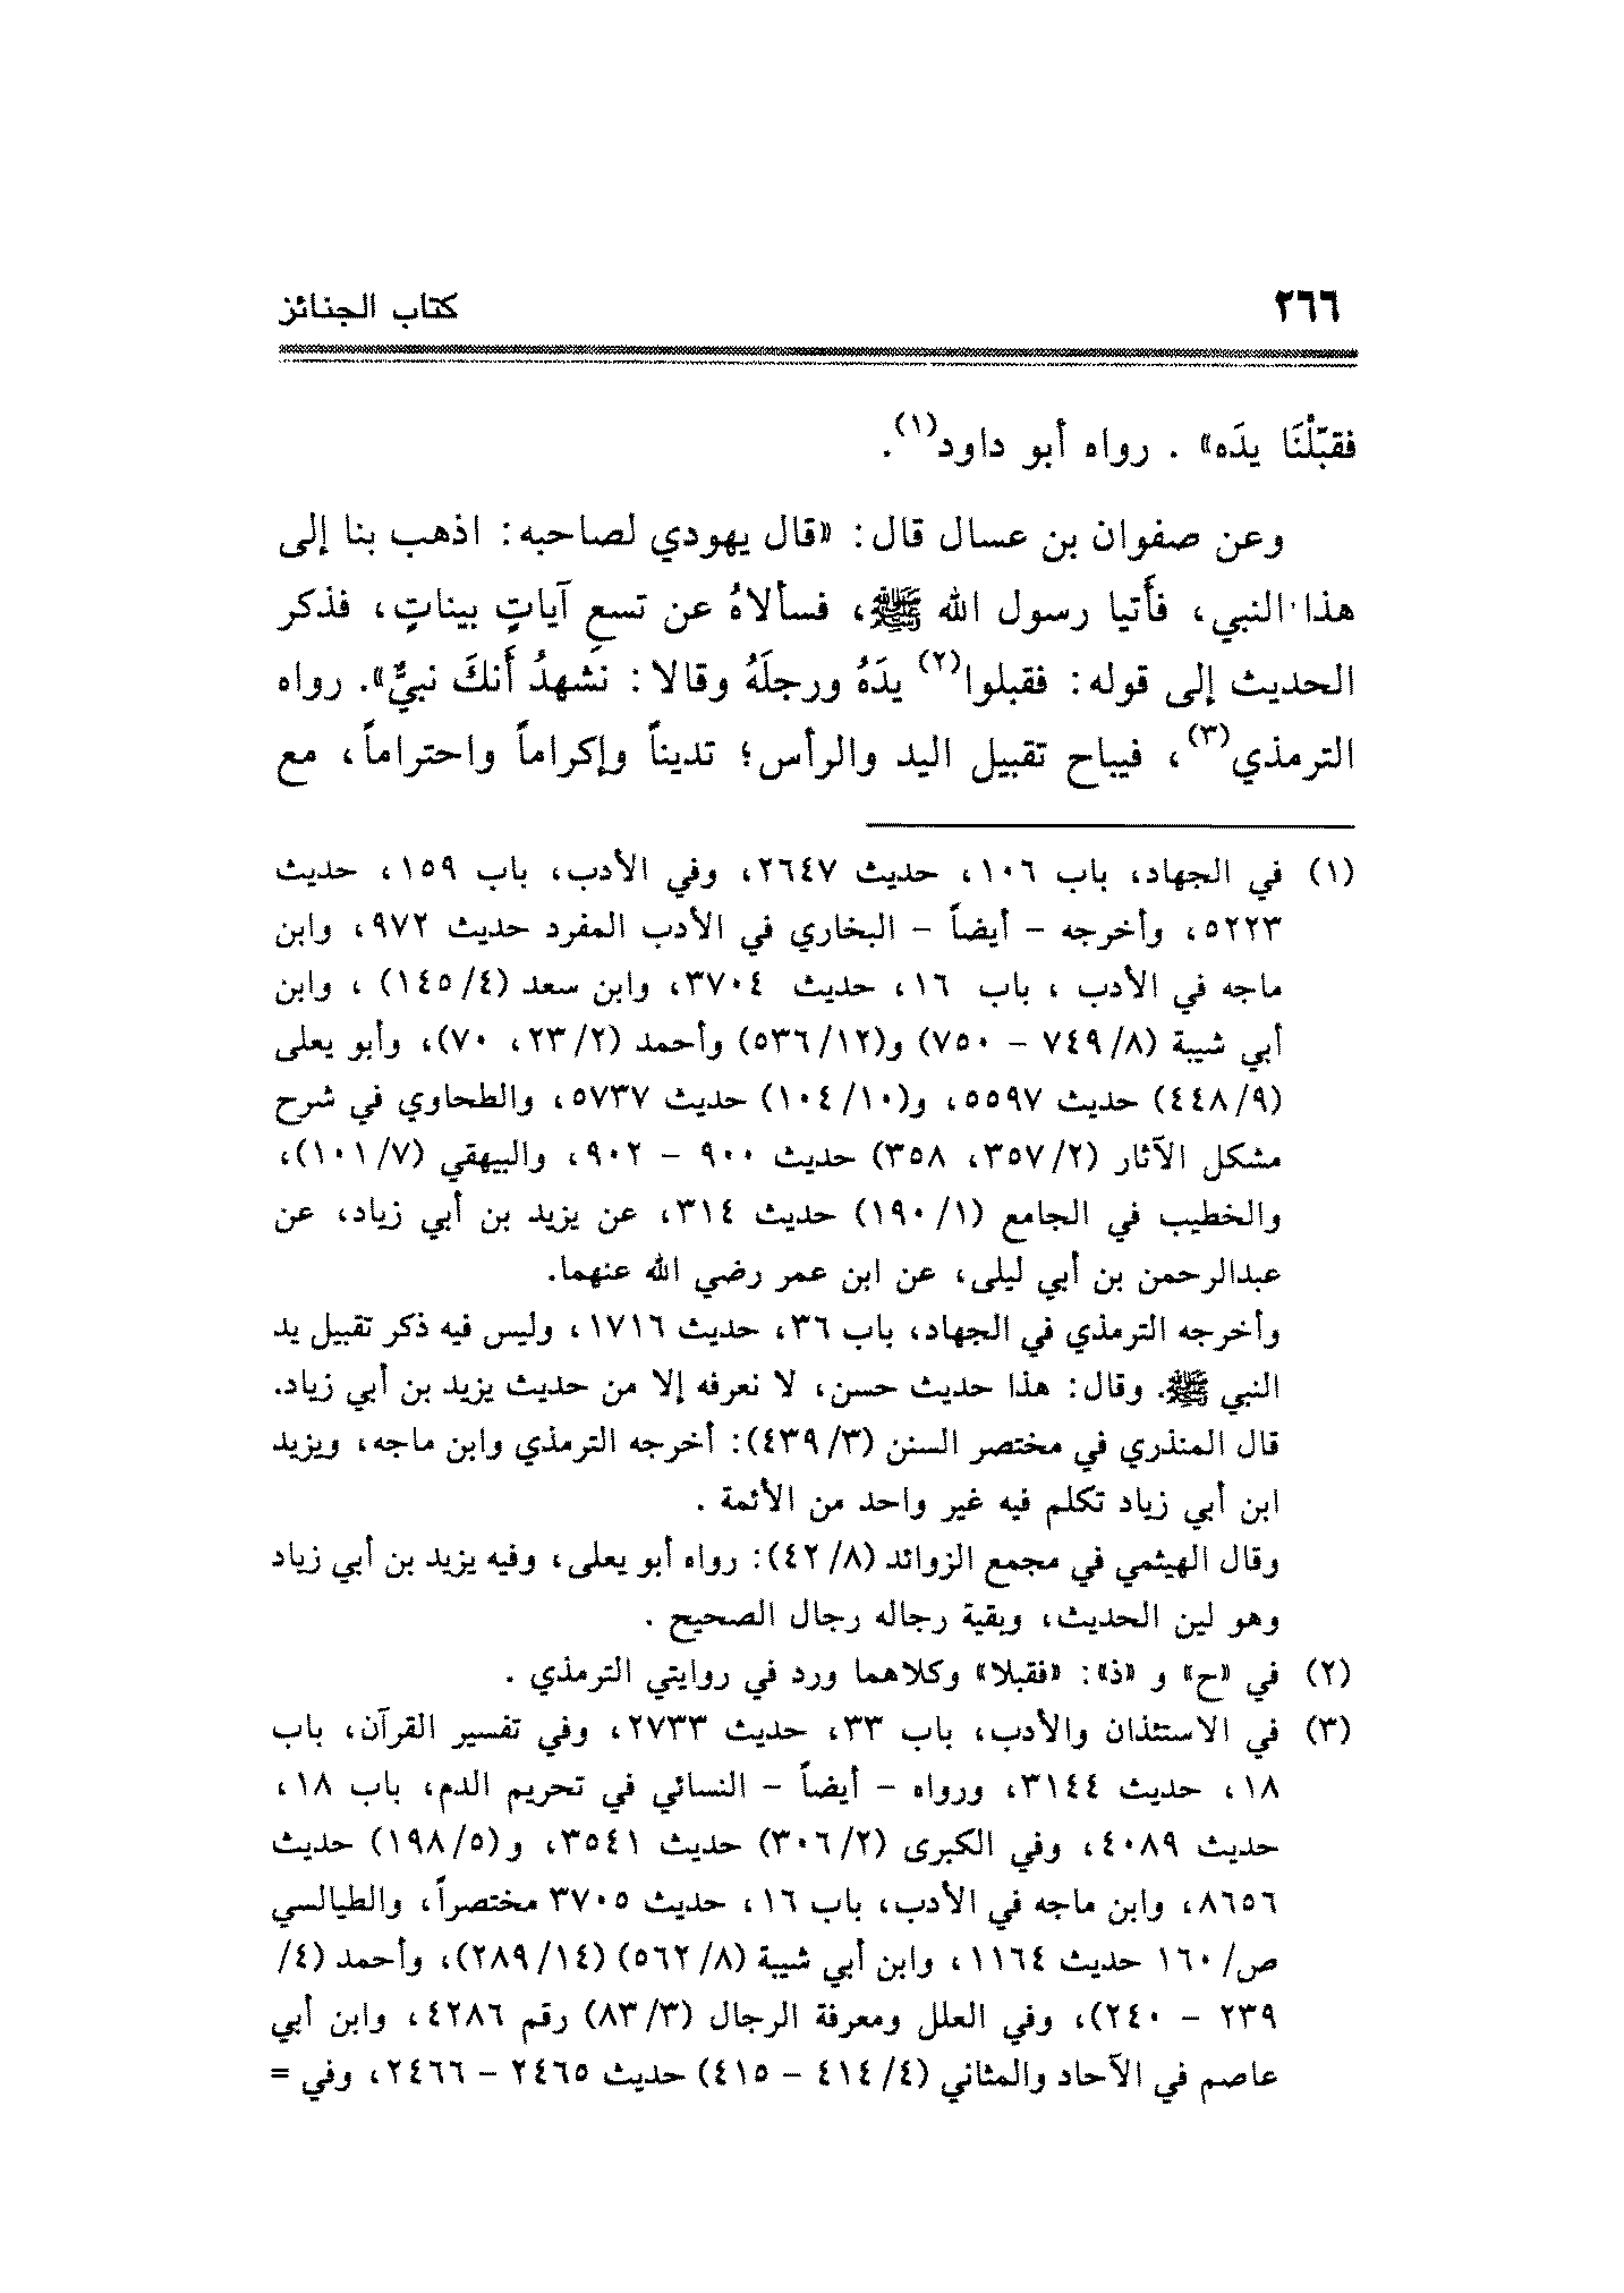 ٢٦٦
كتاب الجنائز
فقبّلْنَا يدَه» . رواه أبو داود(١).
وعن صفوان بن عسال قال: «قال يهودي لصاحبه: اذهب بنا إلى
هذا النبي، فأَتيا رسول الله ﷺ، فسألاهُ عن تسعِ آياتٍ بيناتٍ، فذكر
الحديث إلى قوله: فقبلوا(٢) يدَهُ ورجلَهُ وقالا: نَشهدُ أَنكَ نبيٌّ». رواه
الترمذي(٣)، فيباح تقبيل اليد والرأس؛ تديناً وإكراماً واحتراماً، مع
(١) في الجهاد، باب ١٠٦، حديث ٢٦٤٧، وفي الأدب، باب ١٥٩، حديث
٥٢٢٣، وأخرجه - أيضاً - البخاري في الأدب المفرد حديث ٩٧٢، وابن
ماجه في الأدب ، باب ١٦، حديث ٣٧٠٤، وابن سعد (٤/١٤٥) ، وابن
أبي شيبة (٨/٧٤٩ - ٧٥٠) و(١٢/٥٣٦) وأحمد (٢/٢٣، ٧٠)، وأبو يعلى
(٩/٤٤٨) حديث ٥٥٩٧، و(١٠/١٠٤) حديث ٥٧٣٧، والطحاوي في شرح
مشكل الآثار (٢/٣٥٧، ٣٥٨) حديث ٩٠٠ - ٩٠٢، والبيهقي (٧/١٠١)،
والخطيب في الجامع (١/١٩٠) حديث ٣١٤، عن يزيد بن أبي زياد، عن
عبدالرحمن بن أبي ليلى، عن ابن عمر رضي الله عنهما.
وأخرجه الترمذي في الجهاد، باب ٣٦، حديث ١٧١٦، وليس فيه ذكر تقبيل يد
النبي ﷺ. وقال: هذا حديث حسن، لا نعرفه إلا من حديث يزيد بن أبي زياد.
قال المنذري في مختصر السنن (٣/٤٣٩): أخرجه الترمذي وابن ماجه، ويزيد
ابن أبي زياد تكلم فيه غير واحد من الأئمة .
وقال الهيثمي في مجمع الزوائد (٨/٤٢): رواه أبو يعلى، وفيه يزيد بن أبي زياد
وهو لين الحديث، وبقية رجاله رجال الصحيح .
(٢) في «ح» و «ذ»: «فقبلا» وكلاهما ورد في روايتي الترمذي .
(٣) في الاستئذان والأدب، باب ٣٣، حديث ٢٧٣٣، وفي تفسير القرآن، باب
١٨، حديث ٣١٤٤، ورواه - أيضاً - النسائي في تحريم الدم، باب ١٨،
حديث ٤٠٨٩، وفي الكبرى (٢/٣٠٦) حديث ٣٥٤١، و(٥/١٩٨) حديث
٨٦٥٦، وابن ماجه في الأدب، باب ١٦، حديث ٣٧٠٥ مختصراً، والطيالسي
ص/١٦٠ حديث ١١٦٤، وابن أبي شيبة (٨/٥٦٢) (١٤/٢٨٩)، وأحمد (٤/
٢٣٩ - ٢٤٠)، وفي العلل ومعرفة الرجال (٣/٨٣) رقم ٤٢٨٦، وابن أبي
عاصم في الآحاد والمثاني (٤/٤١٤ - ٤١٥) حديث ٢٤٦٥ - ٢٤٦٦، وفي =